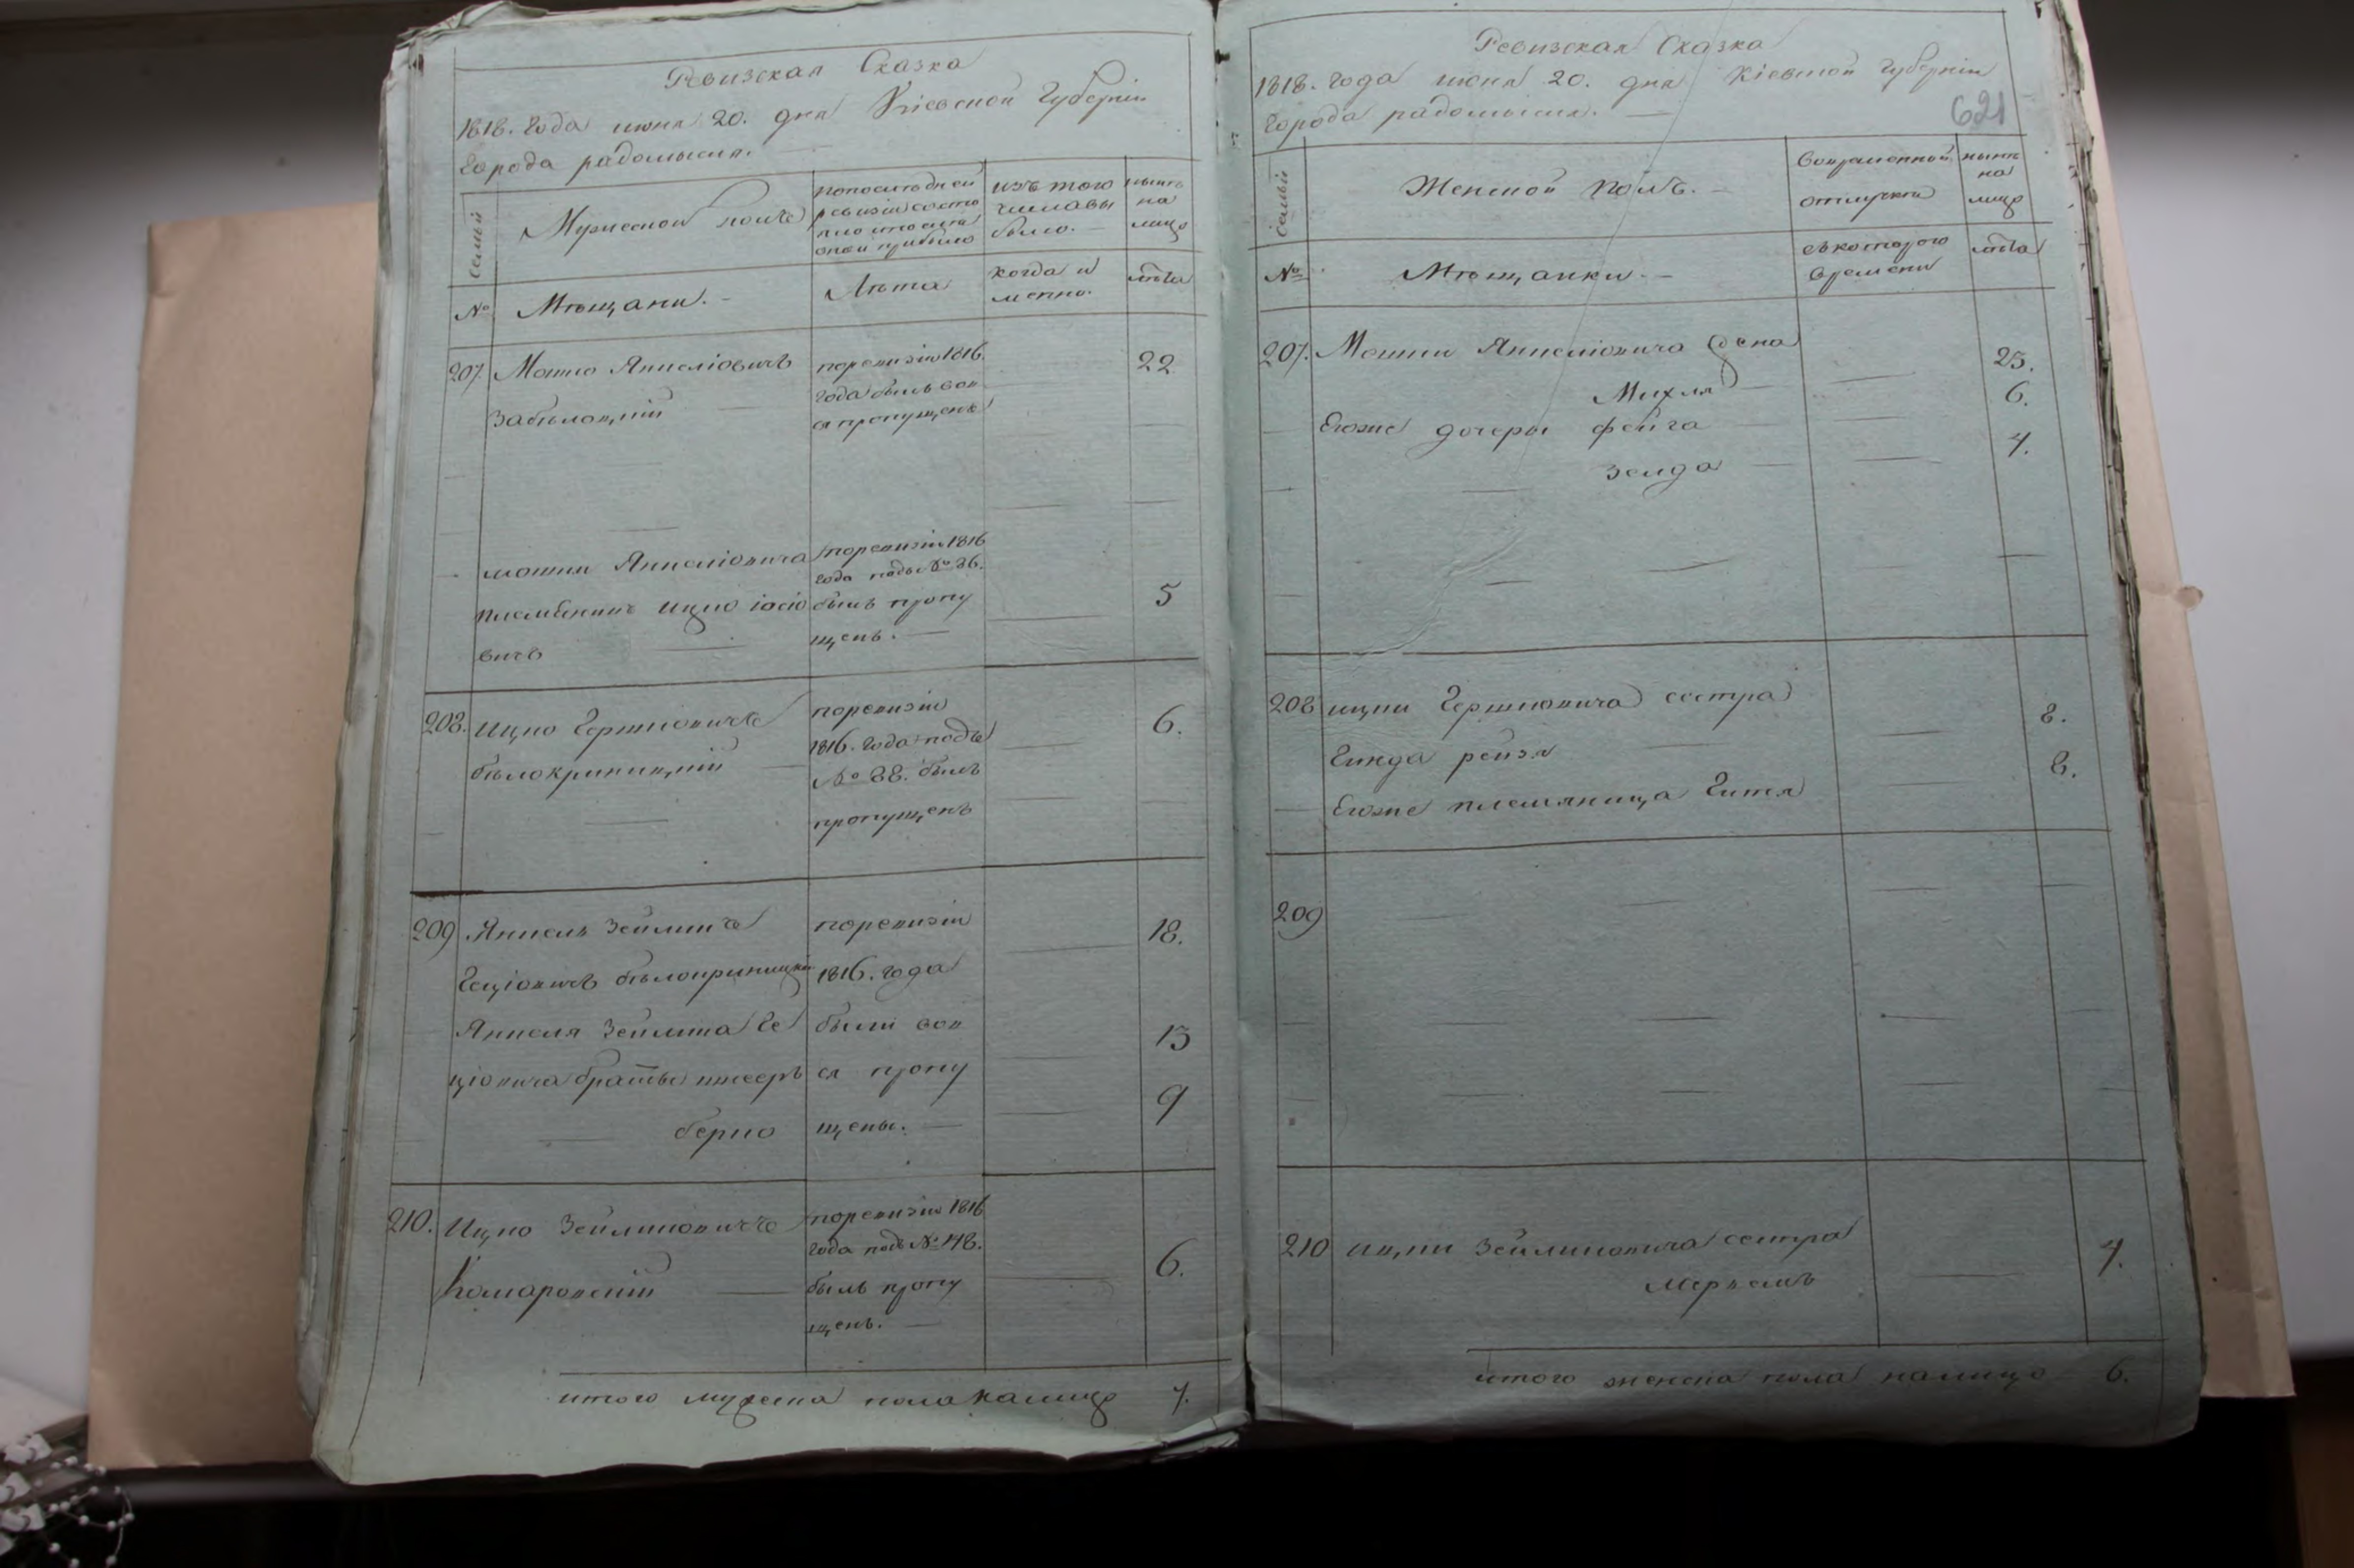 Ревизская Сказка
1818. года июня 20. дня Кіевской Губерніи
города радомысля.
семьи
Мужеской полъ
попоследней
ревизіи состо
яло и после
оной прибыло
изъ того
числа вы
было.
ныне
на
лицо
№
Мѣщани.
Лѣта
когда и
менно.
лѣта
207.
Мошко Янкеліовичъ
Забѣлоцкій
поревизіи 1816.
года былъ вов
ся пропущенъ
22
мошки Янкеліовича
племѣникъ ицко іосіо
вичъ
поревизіи 1816
года подъ № 36.
былъ пропу
щенъ.
5
208.
Ицко Гершковичъ
бѣлокриницкій
поревизіи
1816. года подъ
№ 88. былъ
пропущенъ
6.
209
Янкель Зейликъ
Гецiовичъ бѣлокриницкій
Янкеля Зейлика Ге
цiовича братья
берко
поревизіи
1816. года
были вов
ся пропу
щены.
18.
13
9
210.
Ицко Зейликовичъ
Комаровскій
поревизіи 1816
года подъ № 148.
былъ пропу
щенъ.
6.
итого мужеска пола налицо 7.
Ревизская Сказка
1818. года июня 20. дня Кіевской Губерніи
города радомысля.
621
семьи
Женской полъ.
вовременной
отлучки
ныне
на
лицо
№
Мѣщанки.
съкоторого
времени
лѣта
207.
Мошки Янкеліовича жена
Михля
25.
Егоже дочеры фейга
6.
Зелда
4.
208
ицки Гершковича сестра
Гинда рейзя
8.
Егоже племяница Гитля
8.
209
210
ицки Зейликовича сестра
меркель
4.
итого женска пола налицо 6.